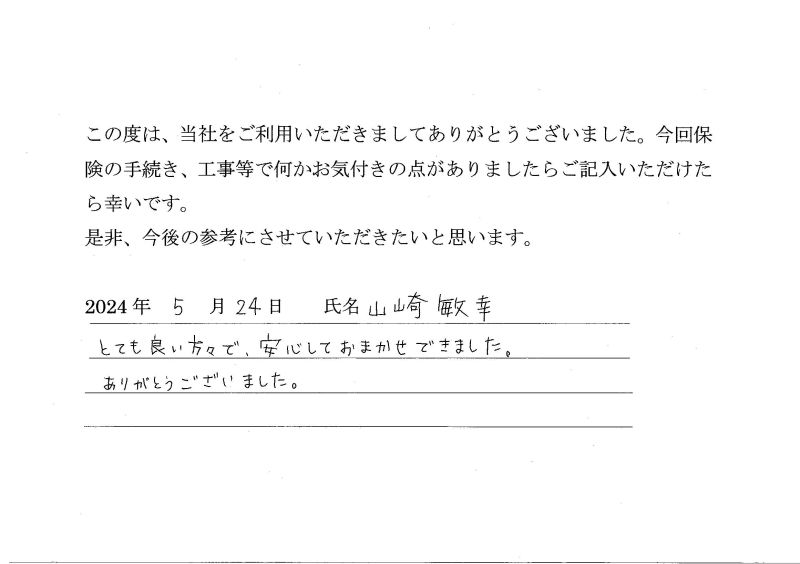 この度は、当社をご利用いただきましてありがとうございました。今回保
険の手続き、工事等で何かお気付きの点がありましたらご記入いただけた
ら幸いです。
是非、今後の参考にさせていただきたいと思います。
2024 年 5 月 24 日 氏名 山崎 敏幸
とても良い方々で、安心しておまかせできました。
ありがとうございました。